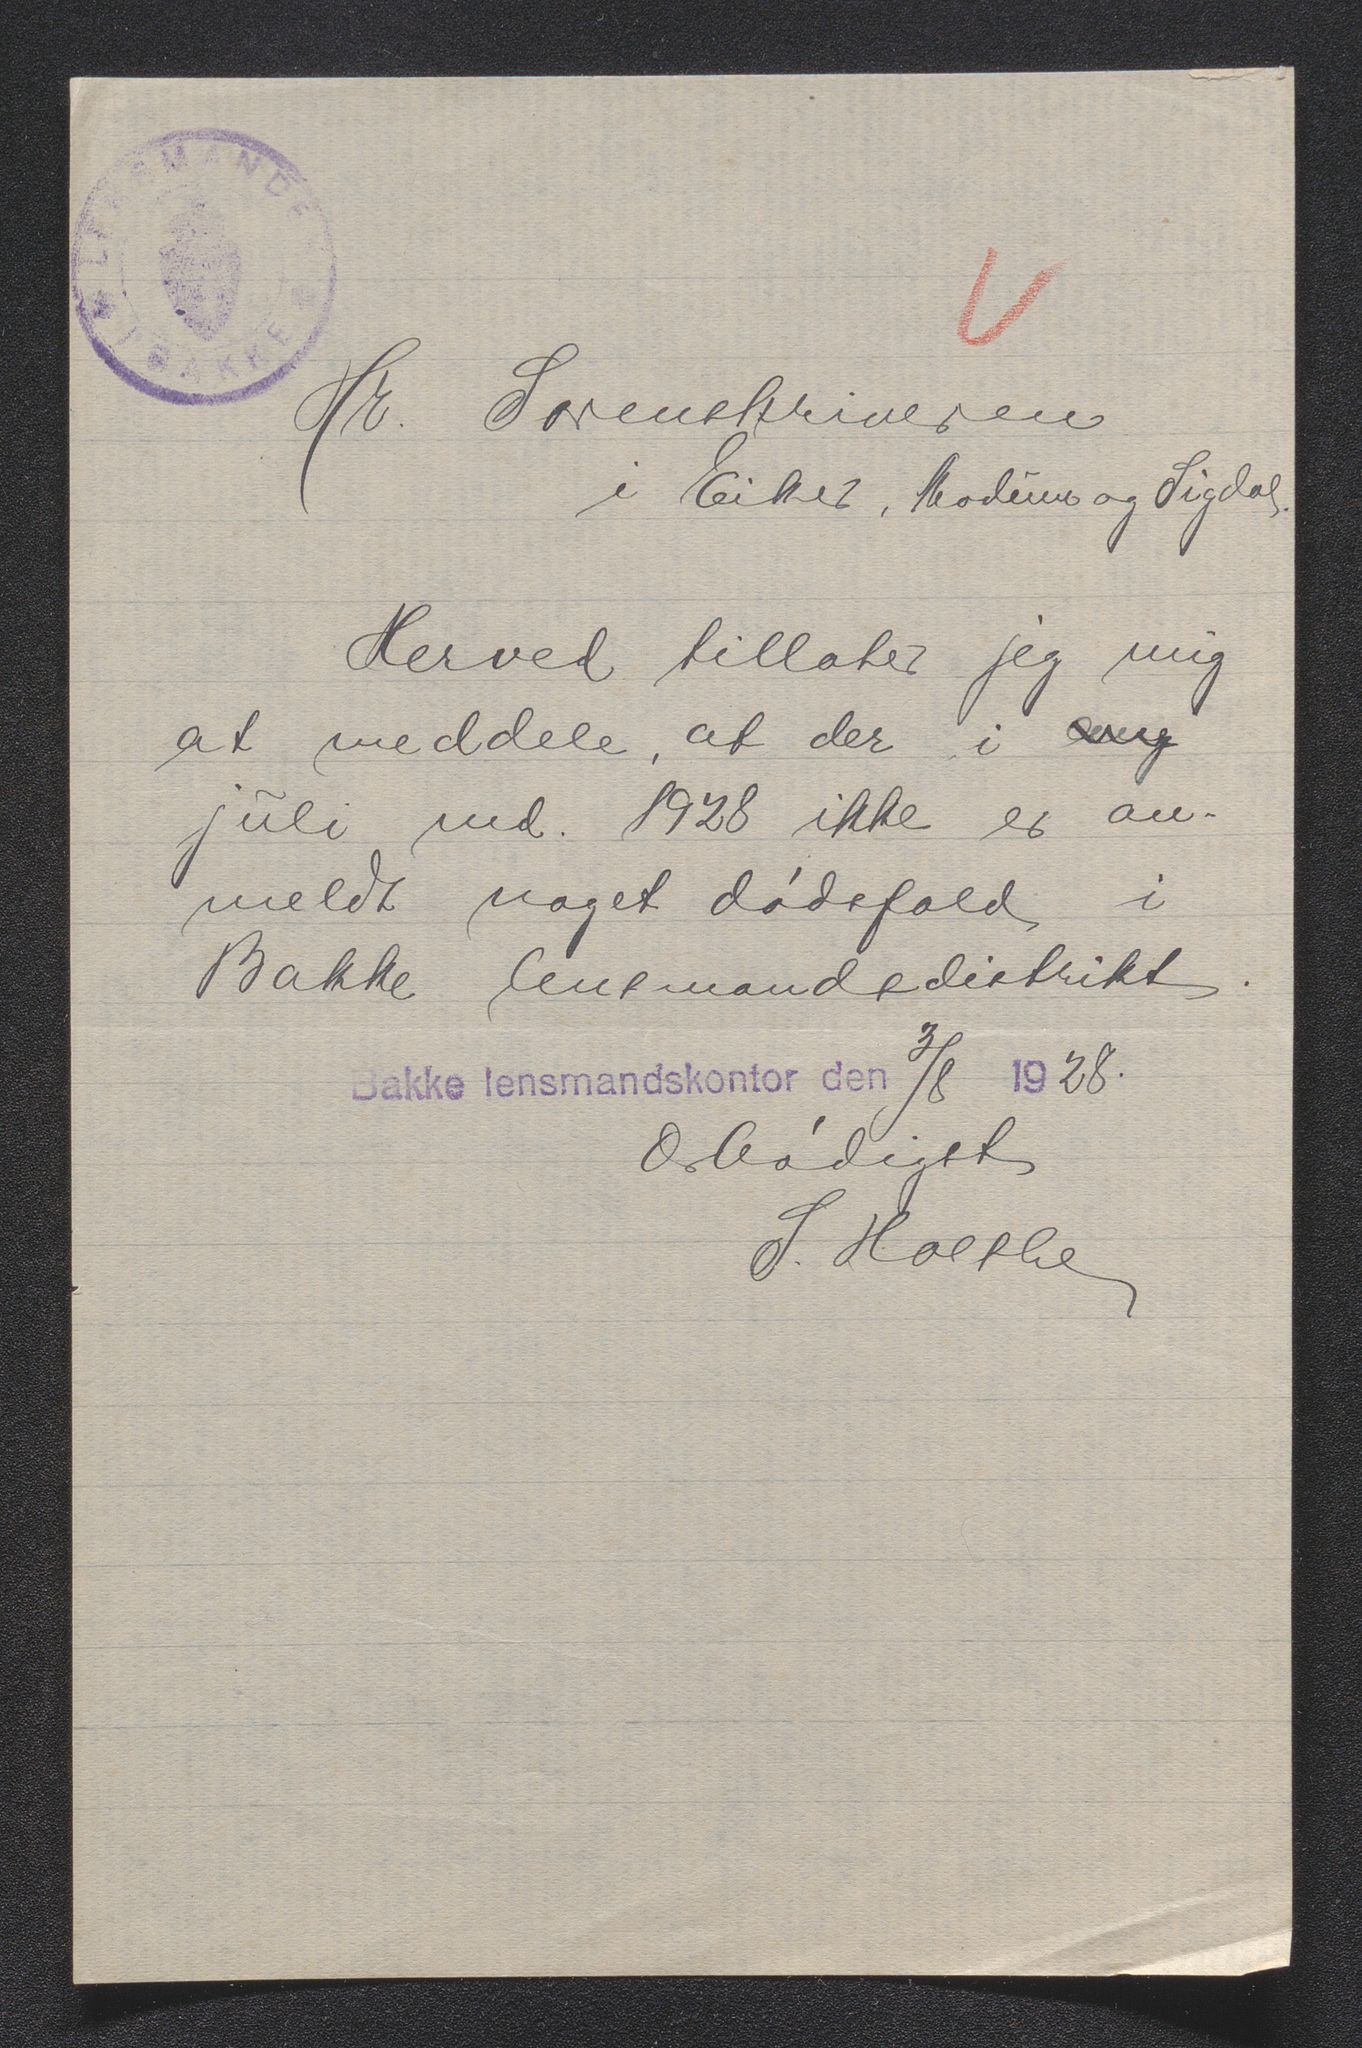 LENSMANDEN
I BAKKE
V
Hr. Sorenskriveren
i Eiker, Modum og Sigdal.
Herved tillater jeg mig
at meddele, at der i
juli md. 1928 ikke er an-
meldt noget dødsfald i
Bakke lensmandsdistrikt.
Bakke lensmandskontor den 3/8 1928.
Ærbødigst
S.